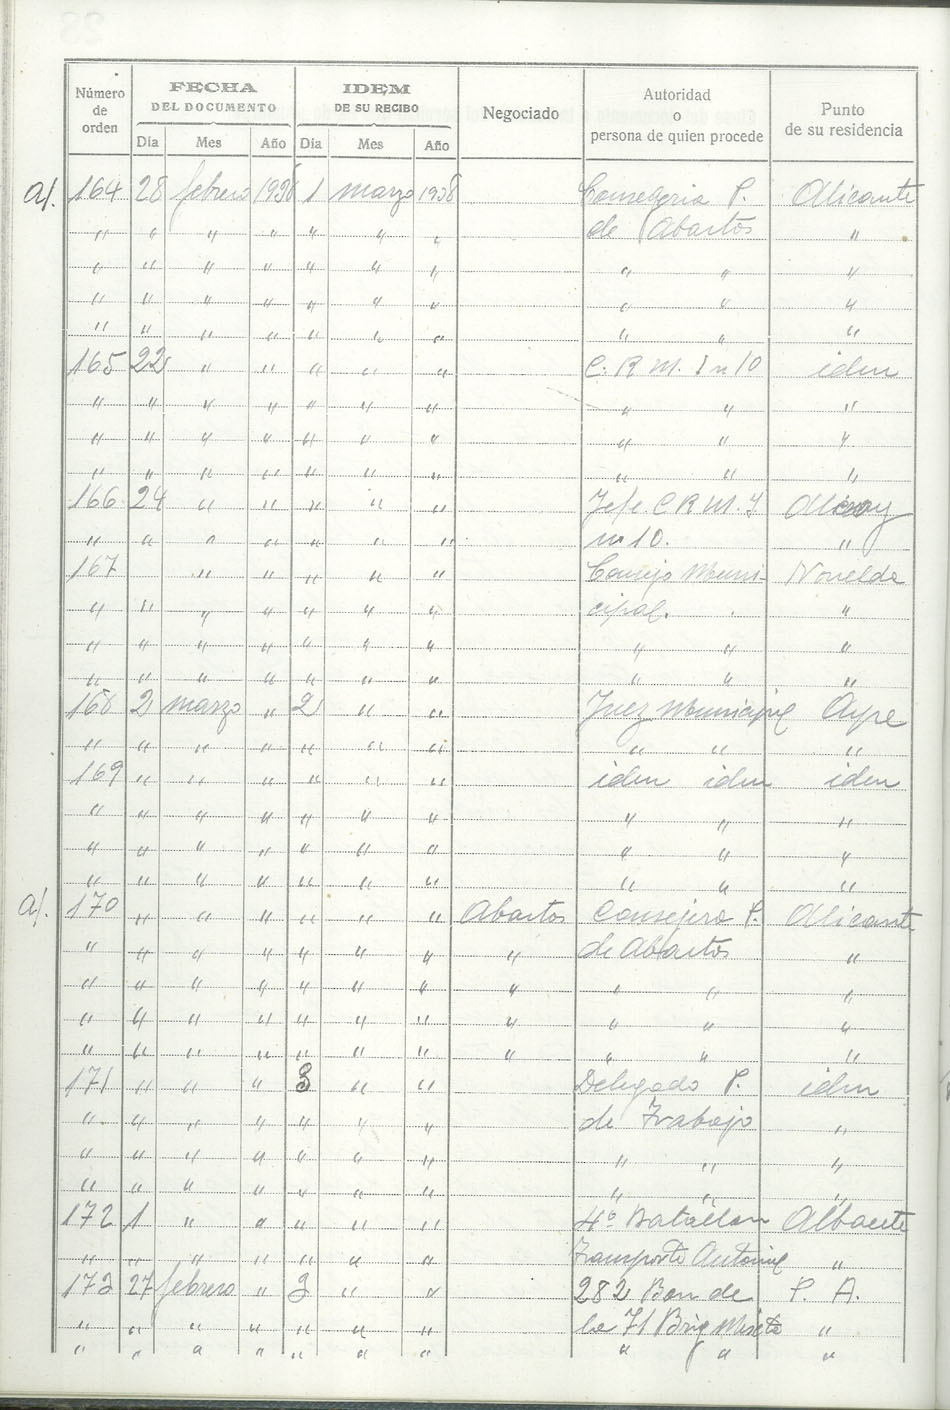 Número de orden
FECHA DEL DOCUMENTO
IDEM DE SU RECIBO
Negociado
Autoridad o persona de quien procede
Punto de su residencia
Día Mes Año Día Mes Año
a/. 164 28 febrero 1938 1 marzo 1938 Consejeria P. Alicante
" " " " " " " de Abastos "
" " " " " " " " " "
" " " " " " " " " "
" " " " " " " " " "
165 22 " " " " " C. R M. I n 10 idem
" " " " " " " " " "
" " " " " " " " " "
" " " " " " " " " "
166 24 " " " " " Jefe. C R M. I Alcoy
" " " " " " " nº 10. "
167 " " " " " Consejo Muni- Novelda
" " " " " " " cipal. "
" " " " " " " " " "
" " " " " " " " " "
168 2 marzo " 2 " " Juez Municipal Aspe
" " " " " " " " " "
169 " " " " " " idem idem idem
" " " " " " " " " "
" " " " " " " " " "
" " " " " " " " " "
a/. 170 " " " " " " Abastos Consejero P. Alicante
" " " " " " " " de Abastos "
" " " " " " " " " " "
" " " " " " " " " " "
" " " " " " " " " " "
171 " " " 3 " " Delegado P. idem
" " " " " " " de Trabajo "
" " " " " " " " " "
" " " " " " " " " "
172 1 " " " " " 4º Batallon Albacete
" " " " " " " Transporte Automil "
173 27 febrero " 3 " " 282 Bon de P. A.
" " " " " " " la 71 Brig Mixta "
" " " " " " " " " "